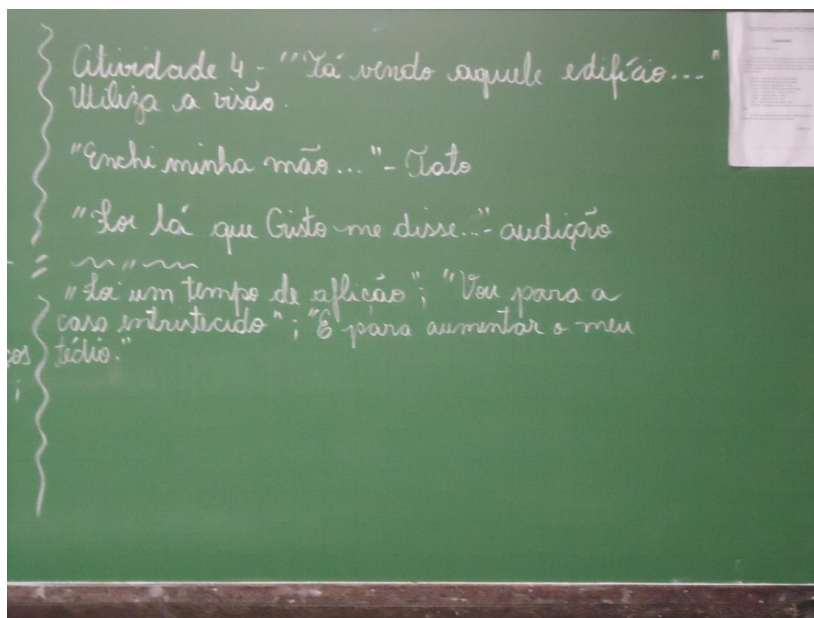 Atividade 4 - "Tá vendo aquele edifício..."
Utiliza a visão.
"Enchi minha mão..." - Tato
"Foi lá que Cristo me disse..." - audição
"Foi um tempo de aflição"; "Vou para a
casa entristecido"; "E para aumentar o meu
ços tédio."
;